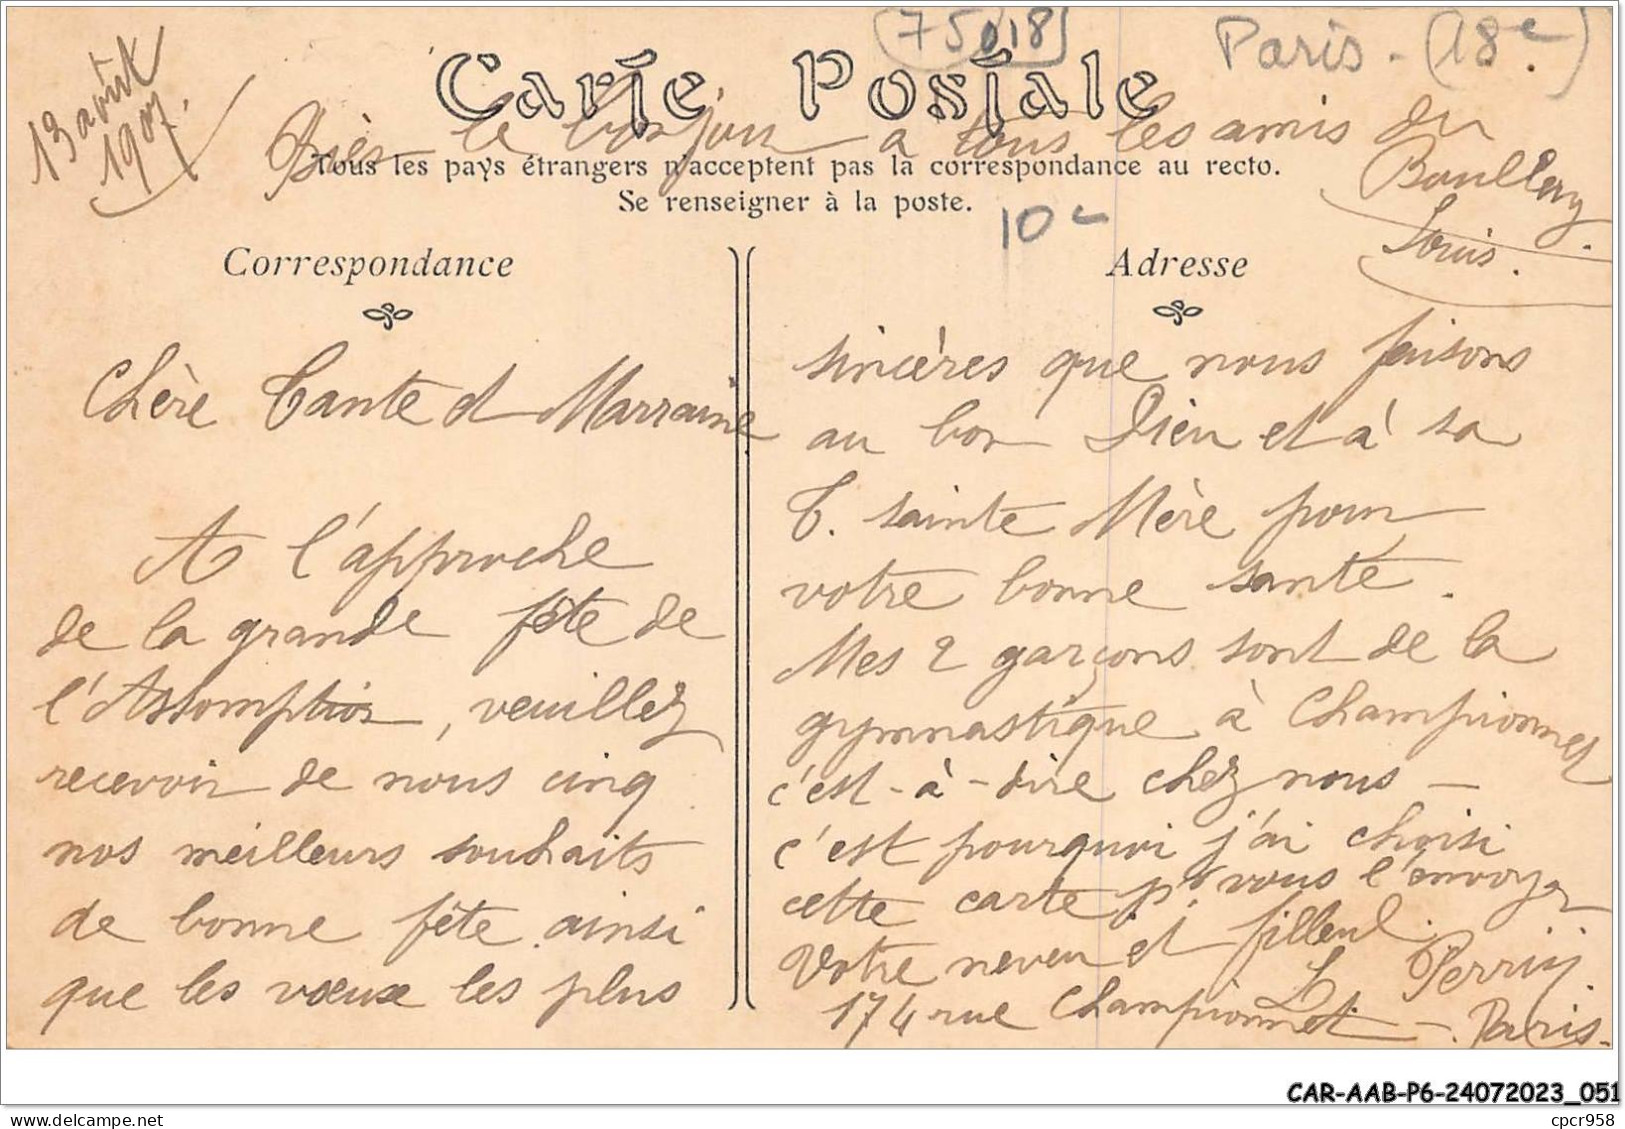 13 août
1907.
(75018)
Paris - (18e).
Carte Postale
le bonjour à tous les amis du
Tous les pays étrangers n'acceptent pas la correspondance au recto.
Se renseigner à la poste.
10e
Louis.
Correspondance
Adresse
Chère Tante et Marraine
A l'approche
de la grande fête de
l'Assomption, veuillez
recevoir de nous cinq
nos meilleurs souhaits
de bonne fête ainsi
que les vœux les plus
sincères que nous faisons
au bon Dieu et à sa
T. sainte Mère pour
votre bonne santé.
Mes 2 garçons sont de la
gymnastique à Championnet
c'est-à-dire chez nous -
c'est pourquoi j'ai choisi
cette carte pr vous l'envoyer
Votre neveu et filleul.
L. Perrin
174 rue Championnet - Paris -
CAR-AAB-P6-24072023_051
24/07/2023
cpcr958